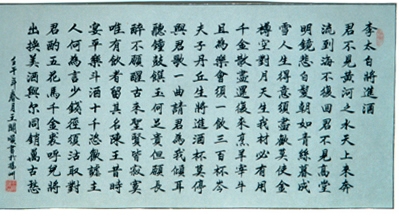 李太白將進酒
君不見黃河之水天上來奔
流到海不復回君不見高堂
明鏡悲白髮朝如青絲暮成
雪人生得意須盡歡莫使金
樽空對月天生我材必有用
千金散盡還復來烹羊宰牛
且為樂會須一飲三百杯岑
夫子丹丘生將進酒杯莫停
與君歌一曲請君為我傾耳
聽鐘鼓饌玉何足貴但願長
醉不願醒古來聖賢皆寂寞
唯有飲者留其名陳王昔時
宴平樂斗酒十千恣歡謔主
人何為言少錢徑須沽取對
君酌五花馬千金裘呼兒將
出換美酒與爾同銷萬古愁
壬午年春月王